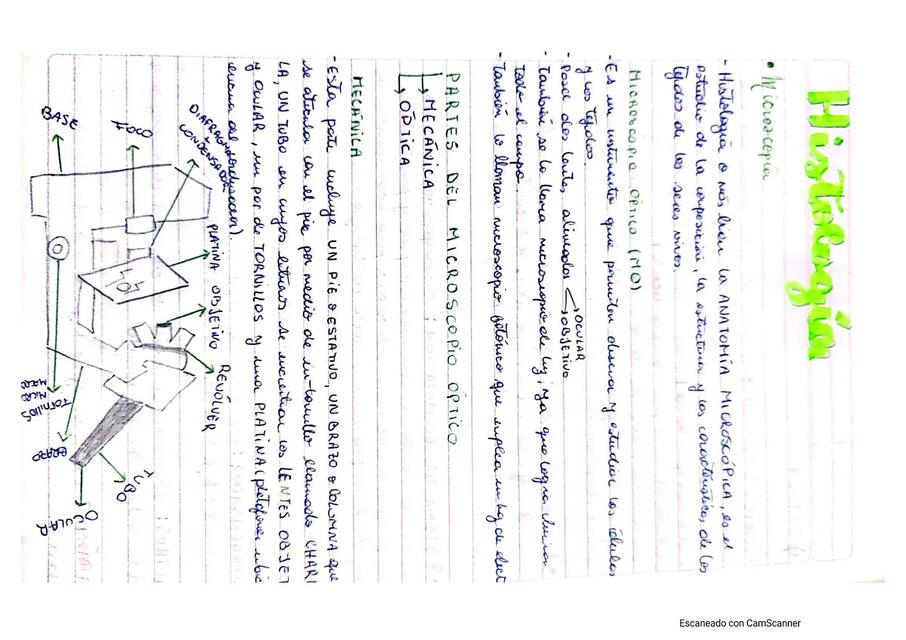 Histología
• Microscopía
- Histología o más bien la ANATOMÍA MICROSCÓPICA, es el
estudio de la composición, la estructura y las características de los
tejidos de los seres vivos
MICROSCOPIO ÓPTICO (MO)
- Es un instrumento que permiten observar y estudiar las células
y los tejidos.
- Posee dos lentes, alineados → OCULAR
→ OBJETIVO
- También se lo llama microscopio de luz, ya que logra iluminar
todo el campo.
- También lo llaman microscopio fotónico que emplea un haz de elect
PARTES DEL MICROSCOPIO ÓPTICO
→ MECÁNICA
→ ÓPTICA
MECÁNICA
- Esta parte incluye UN PIE o ESTATIVO, UN BRAZO o COLUMNA que
se articula con el pie por medio de un tornillo llamado CHAR
LA, UN TUBO en cuyos extremos se encuentran los LENTES OBJET
y OCULAR, un par de TORNILLOS y una PLATINA (plataforma ubic
encima del condensador).
BASE
FOCO
DIAFRAGMA
CONDENSADOR
PLATINA
OBJETIVO
REVÓLVER
TORNILLOS
MICRO
MACRO
BRAZO
TUBO
OCULAR
Escaneado con CamScanner